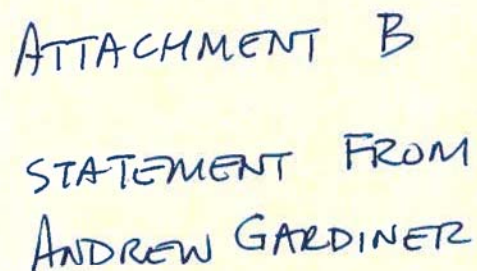 ATTACHMENT B
STATEMENT FROM
ANDREW GARDINER